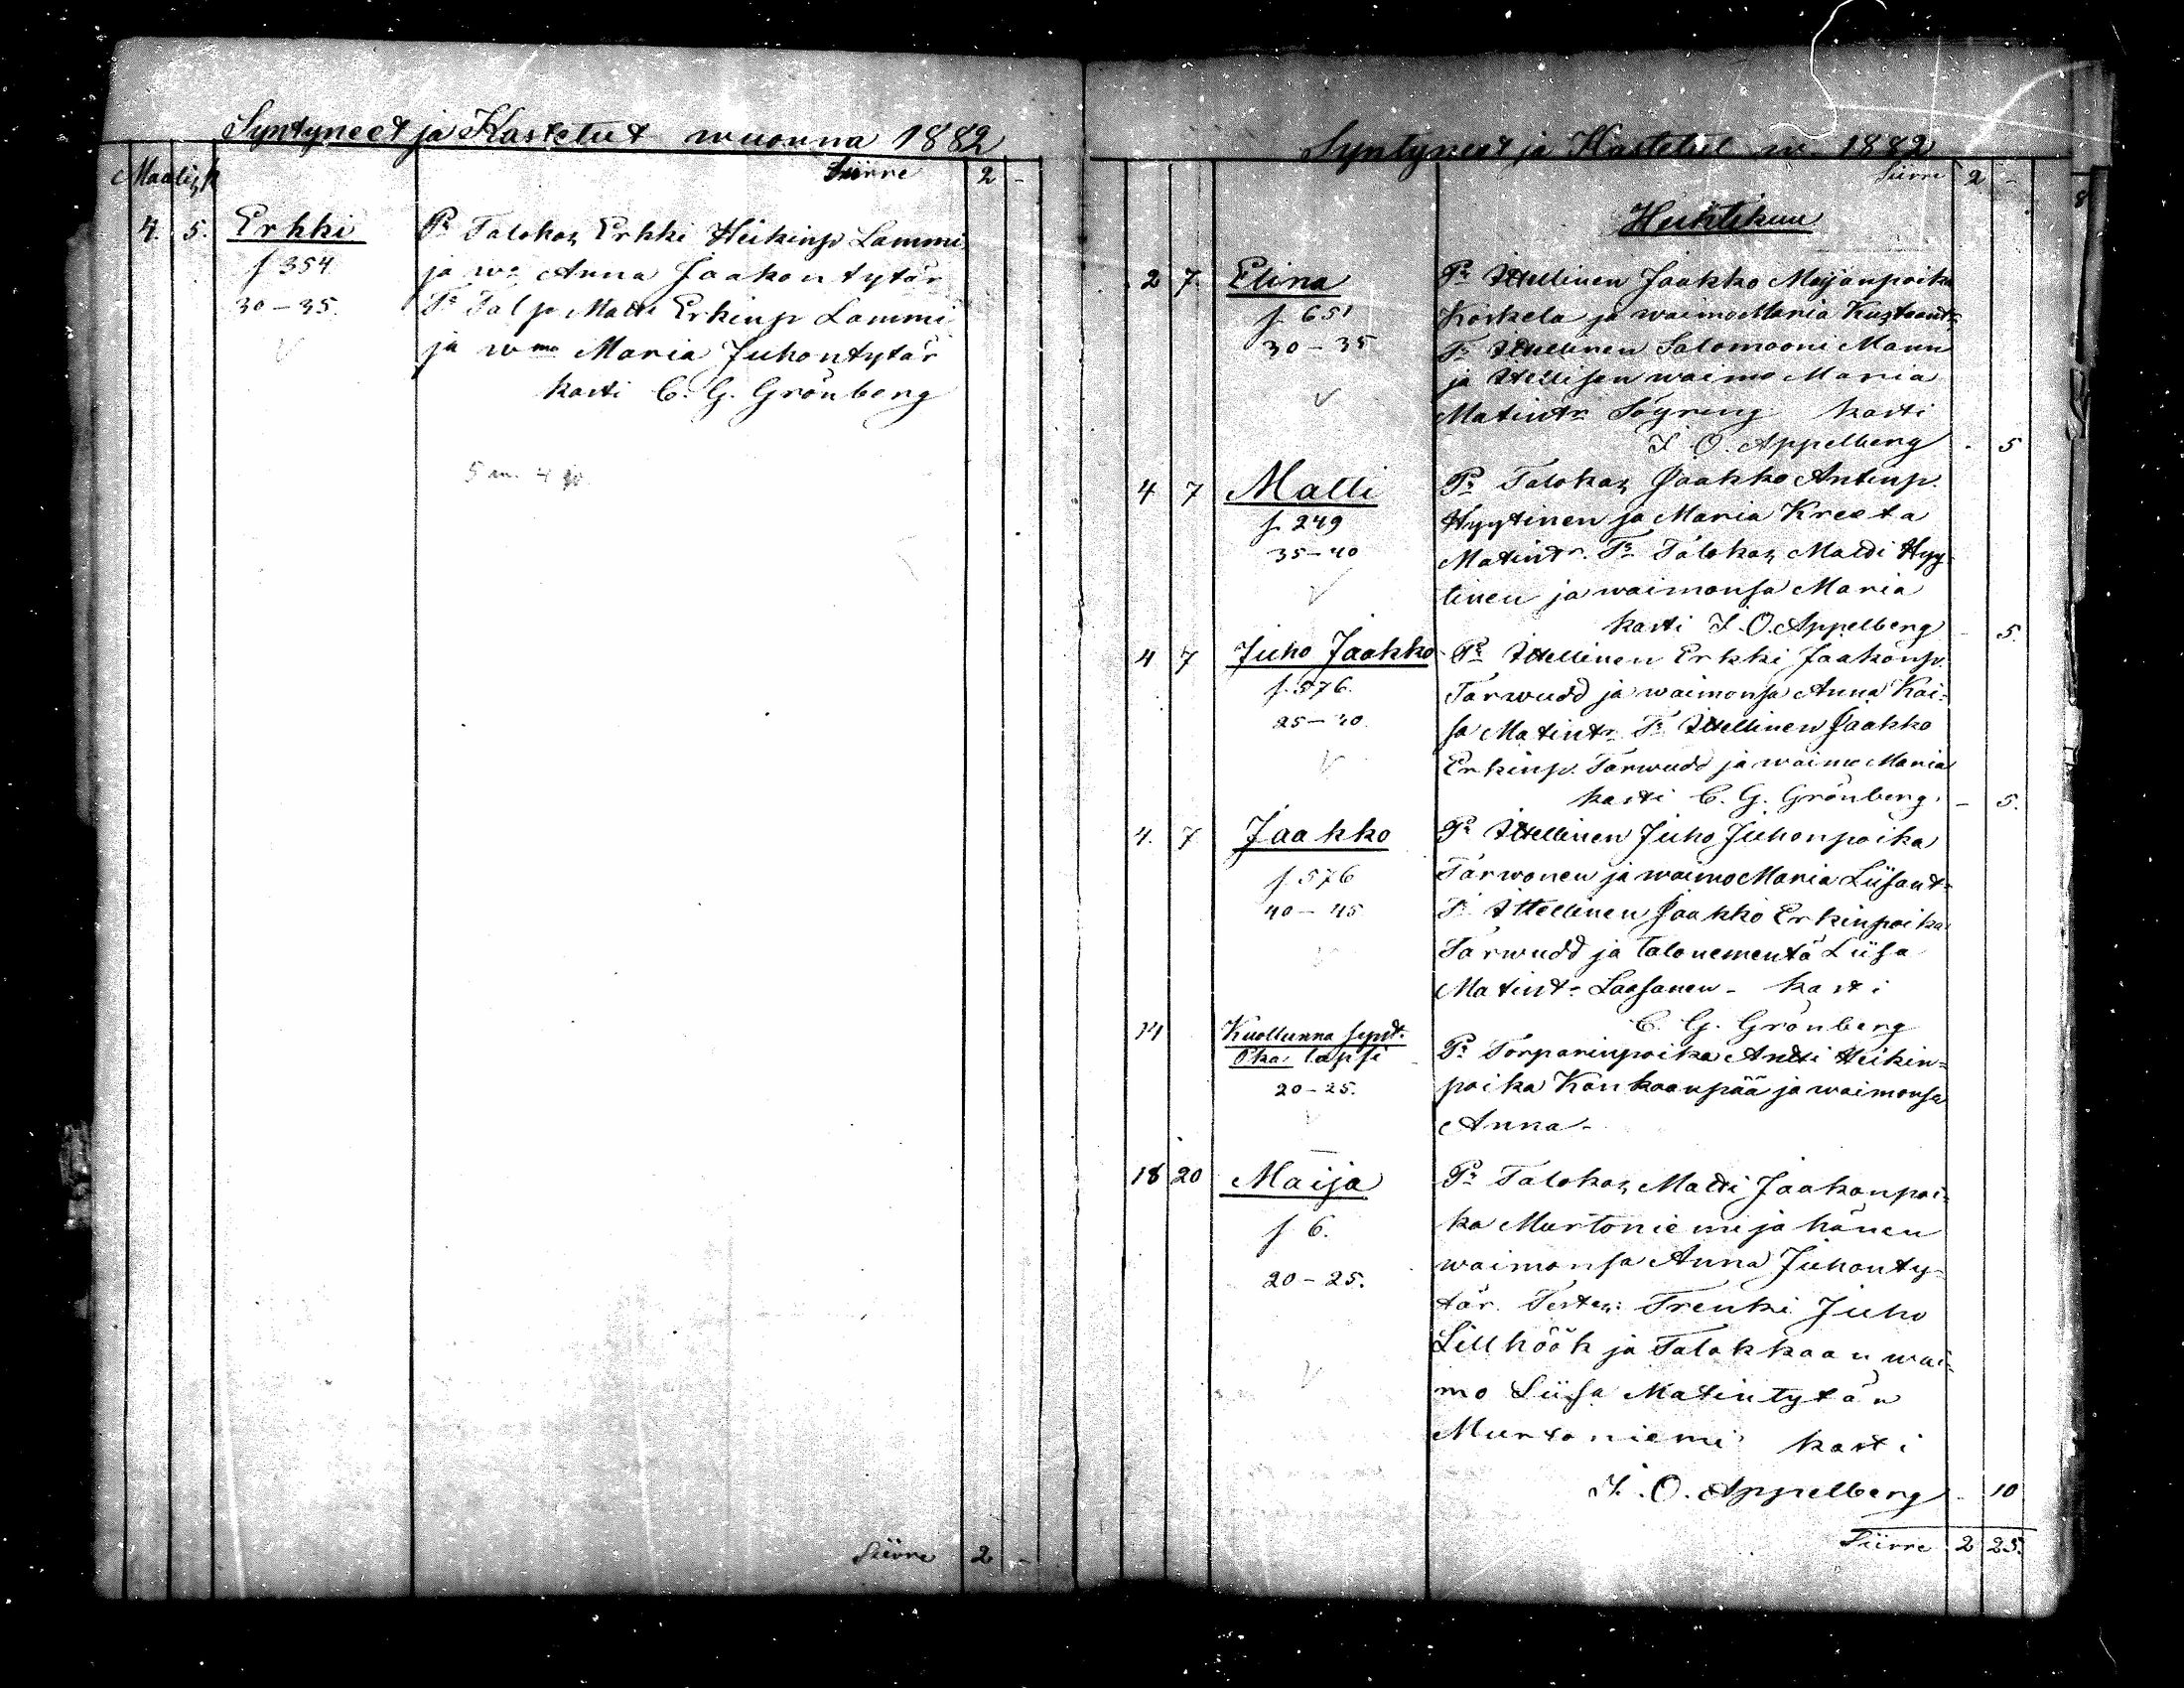 Syntyneet ja Kastetut wuonna 1882
Maalisk
Siirre 2 -
4. 5. Erkki
f 354
30-35.
Pr Talokas Erkki Heikinp Lammi
ja wo Anna Jaakontytär
Tr Talp Matti Erkinp Lammi
ja wmo Maria Juhontytär
kasti C. G. Grönberg
Siirre 2 -
Syntyneet ja Kastetut w. 1882
Siirre 2 -
Huhtikuu
2 7. Elina
f. 651
30-35
Pr Itellinen Jaakko Maijanpoika
Koskela ja waimo Maria Kustaantr
Tr Itellinen Salomooni Mann
ja Itellisen waimo Maria
Matintr Söyring kasti
I. O. Appelberg - 5
4 7 Matti
f. 249
35-40
Pr Talokas Jaakko Antinp.
Hyytinen ja Maria Kreeta
Matintr. Tr Talokas Matti Hyy-
tinen ja waimonsa Maria
kasti I. O. Appelberg - 5.
4 7 Juho Jaakko
f. 576.
25-30.
Pr Itellinen Erkki Jaakonp.
Tarwudd ja waimonsa Anna Kai-
sa Matintr Tr Itellinen Jaakko
Erkinp. Tarwudd ja waimo Maria
kasti C. G. Grönberg. - 5.
4. 7 Jaakko
f. 576
40-45
Pr Itellinen Juho Juhonpoika
Tarwonen ja waimo Maria Liisant-
Tr Itellinen Jaakko Erkinpoika
Tarwudd ja talonemäntä Liisa
Matint- Laasanen - kasti
C. G. Grönberg
14 Kuollunna synt.
Pka lapsi
20-25.
Pr Torparinpoika Antti Heikin-
poika Kankaanpää ja waimonsa
Anna -
18 20 Maija
f. 6.
20-25.
Pr Talokas Matti Jaakonpoi-
ka Murtoniemi ja hänen
waimonsa Anna Juhonty-
tär. Testes: Trenki Juho
Lillhöök ja Talokkaan wai-
mo Liisa Matintytär
Murtoniemi kasti
I. O. Appelberg - 10
Siirre 2 25.